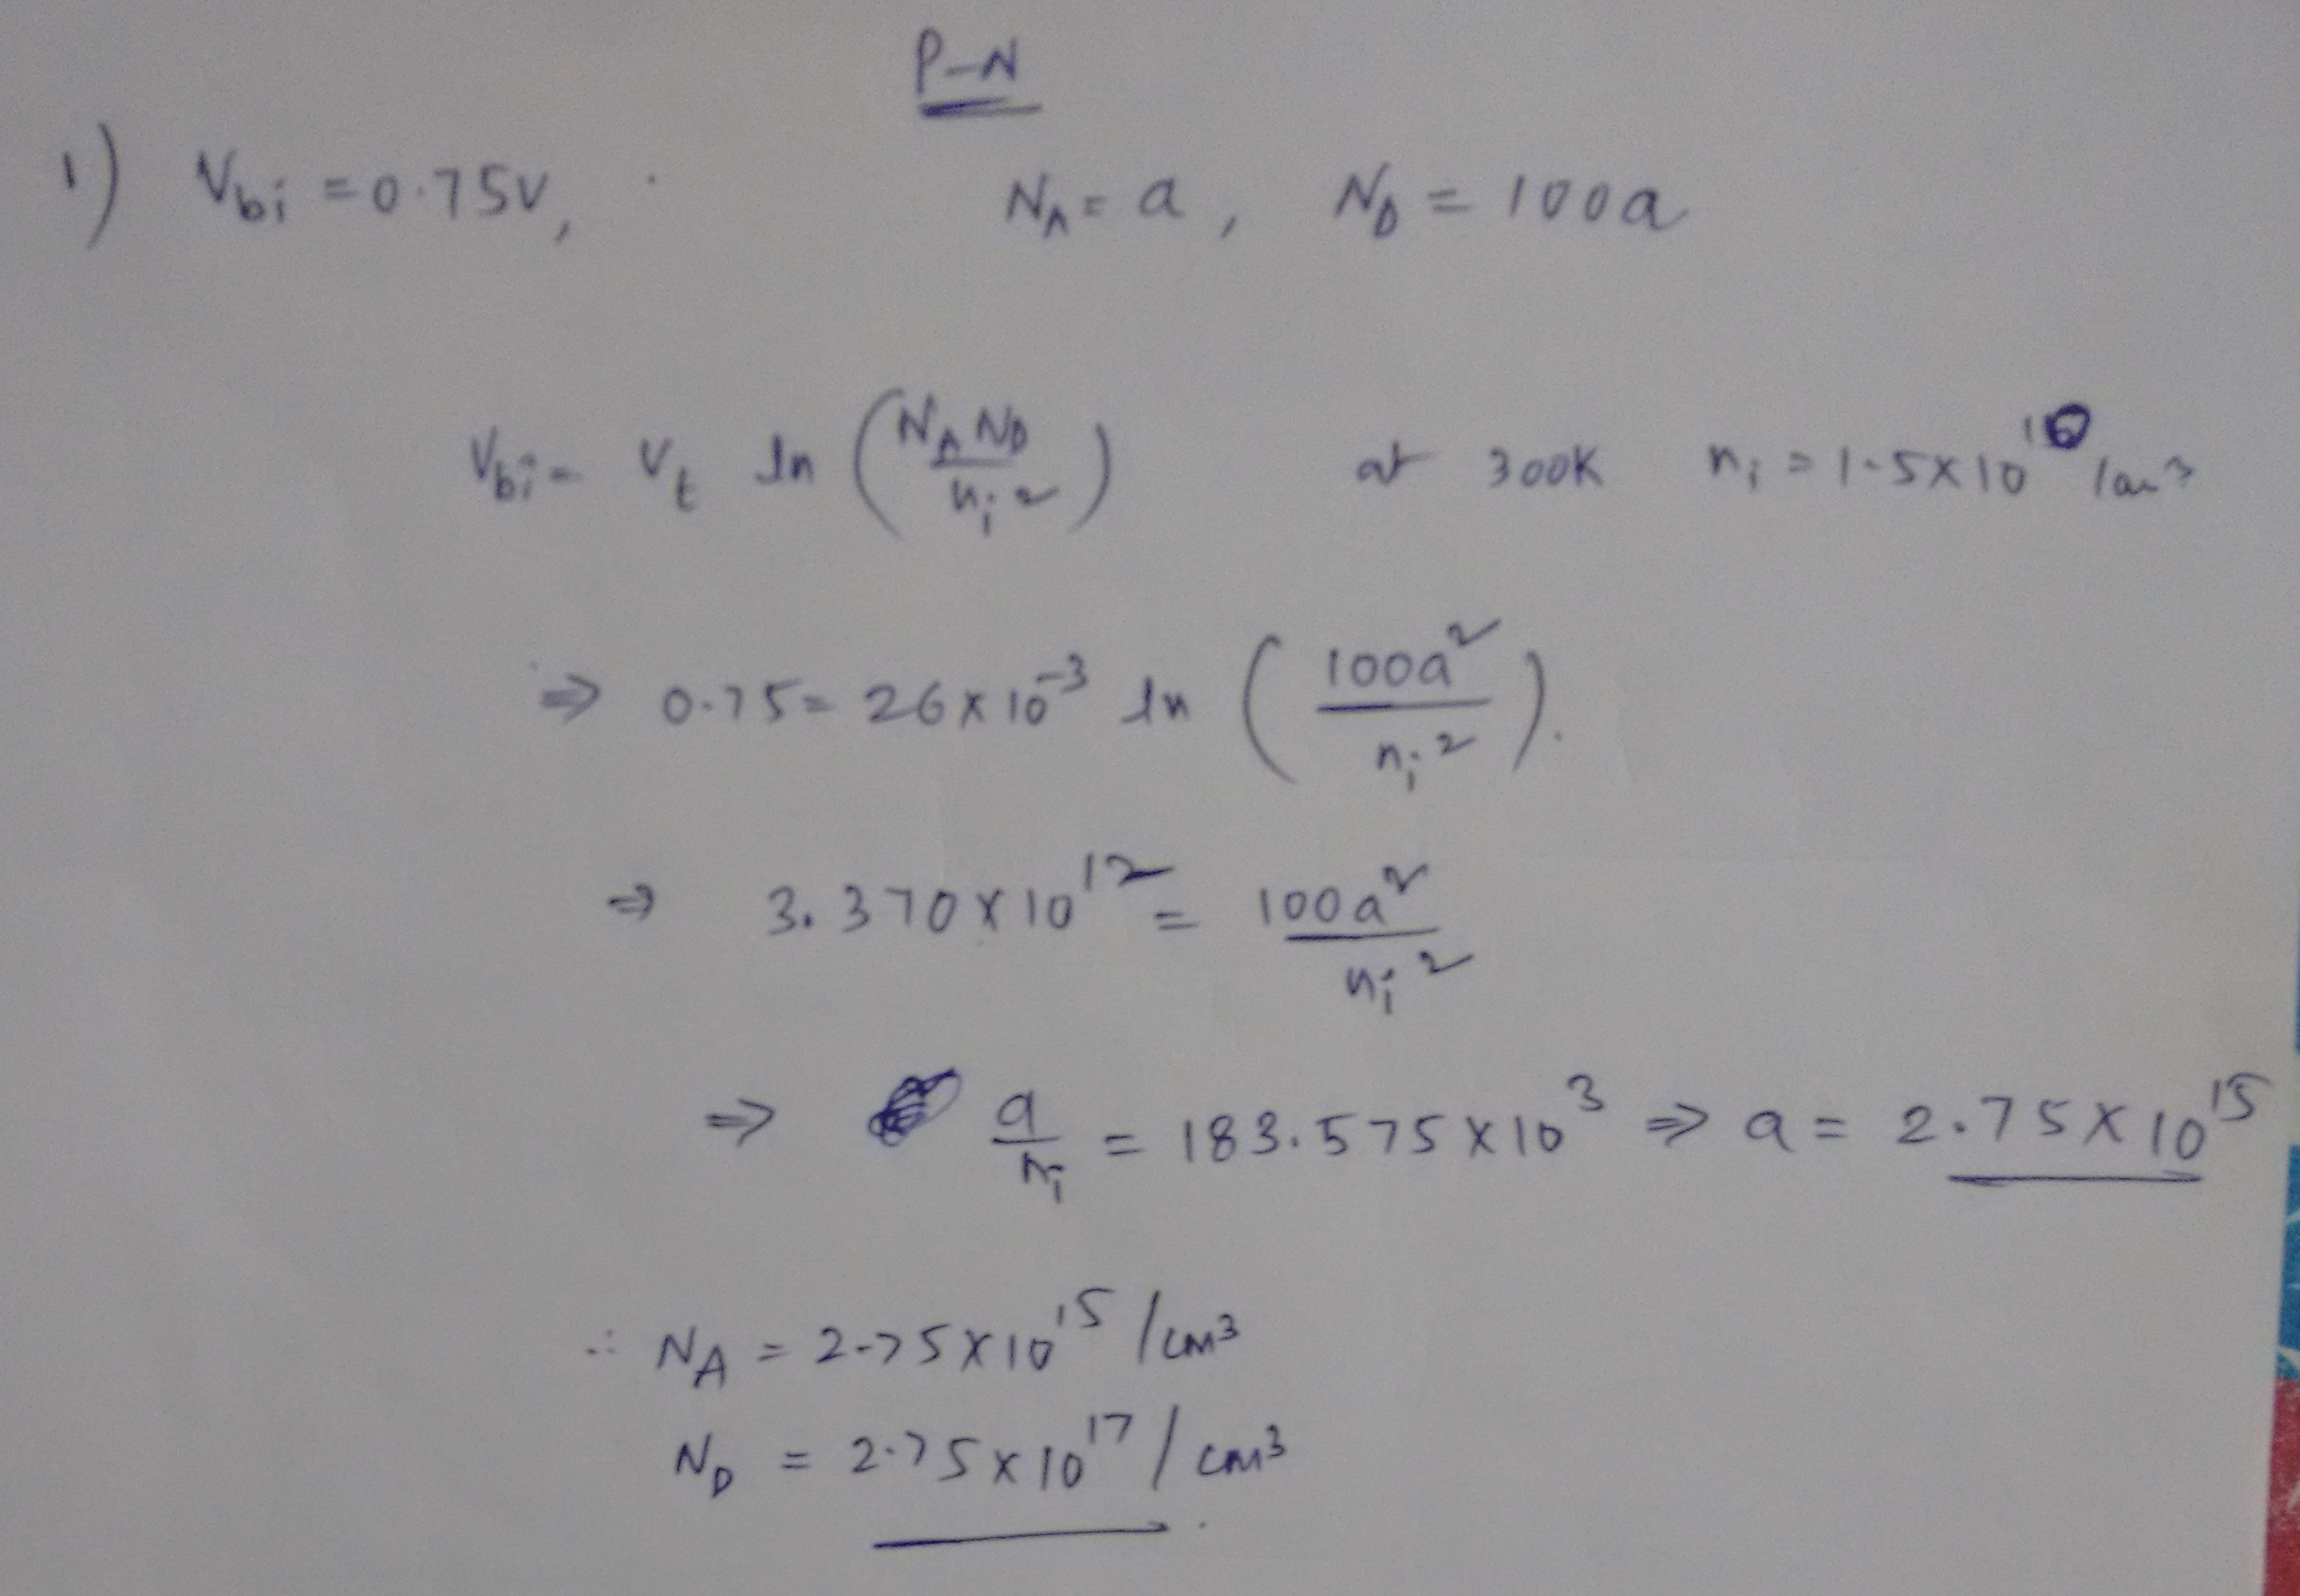 P-N
1) Vbi = 0.75V, NA = a, ND = 100a
Vbi = Vt ln (NA ND / ni²) at 300K ni = 1.5×10¹⁰ /cm³
⇒ 0.75 = 26×10⁻³ ln (100a² / ni²).
⇒ 3.370×10¹² = 100a² / ni²
⇒ a / ni = 183.575×10³ ⇒ a = 2.75×10¹⁵
∴ NA = 2.75×10¹⁵ /cm³
ND = 2.75×10¹⁷ / cm³